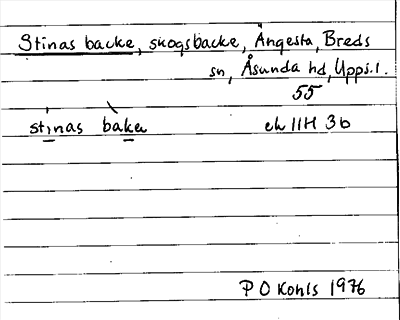 Stinas backe, skogsbacke, Ängesta, Breds
sn, Åsunda hd, Upps.l.
55
stinas bakeɩ ek 11H 3b
P O Kohls 1976